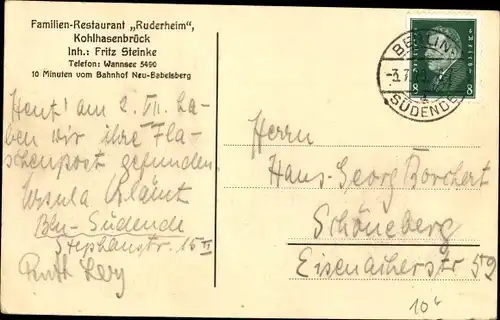 Familien-Restaurant „Ruderheim",
Kohlhasenbrück
Inh.: Fritz Steinke
Telefon: Wannsee 5490
10 Minuten vom Bahnhof Neu-Babelsberg
Heut' am 2. VII. ha-
ben wir ihre Fla-
schenpost gefunden.
Ursula
Bln-Südende
Stephanstr. 15 II
Ruth Levy
BERLIN
-3.7.
SÜDENDE
8 8
Herrn
Hans-Georg Borchert
Schöneberg
Eisenacherstr 59
10